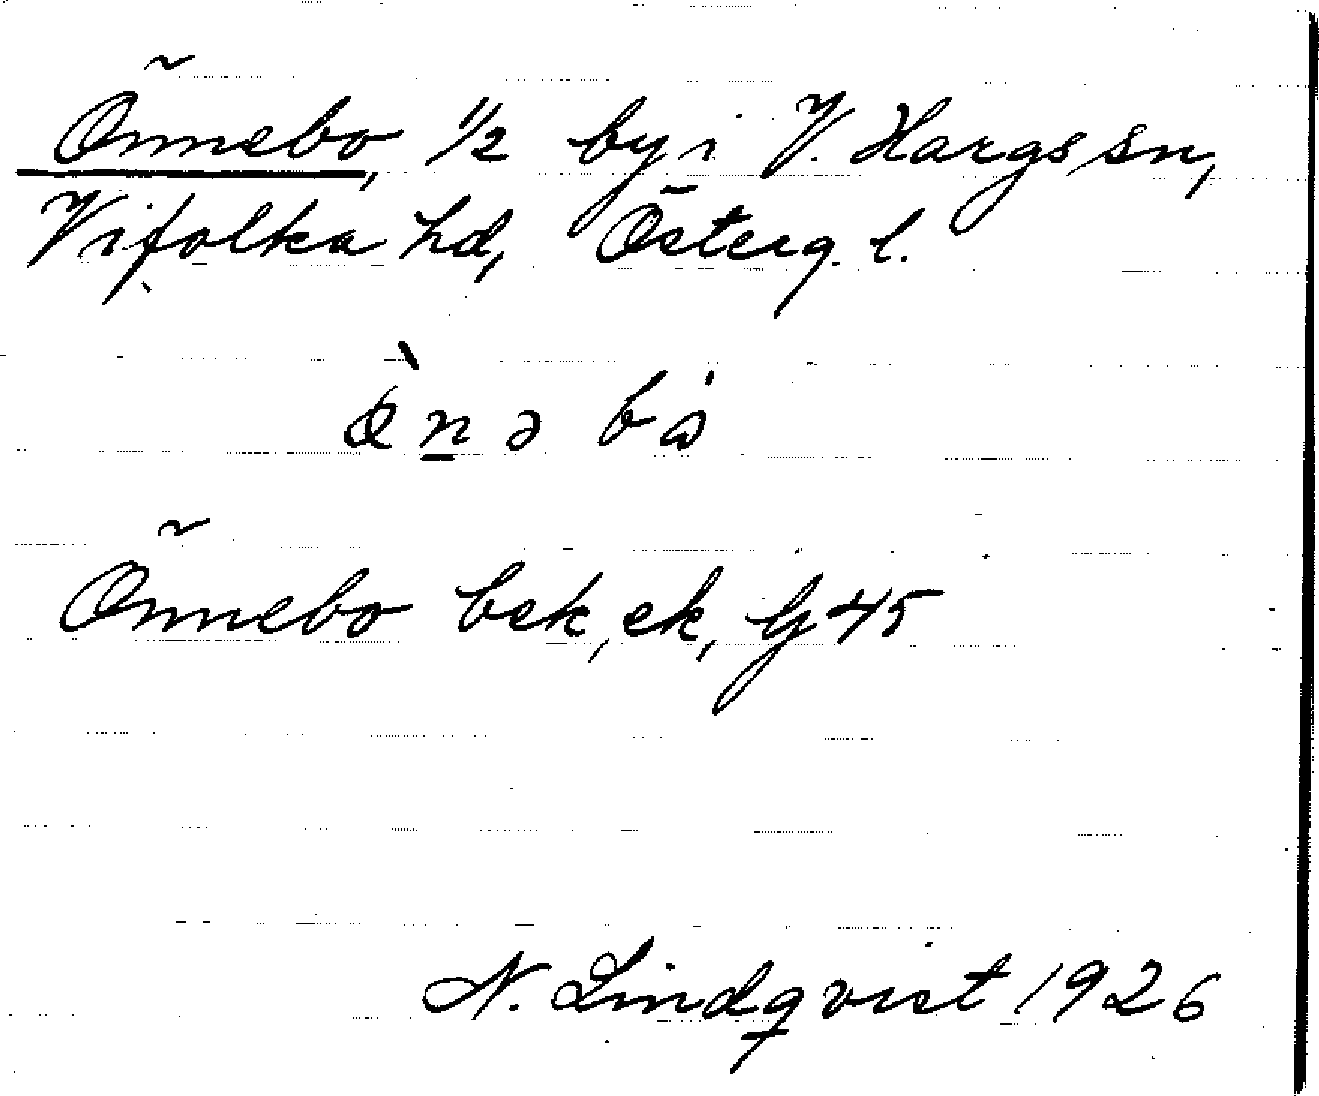 Önnebo, 1/2 by i V. Hargs sn,
Vifolka hd, Österg. l.
Önnebo bek, ek, G 45
N. Lindqvist 1926